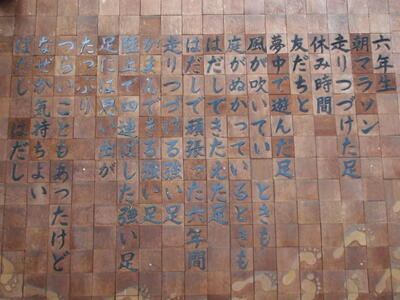 六年生
朝マラソン
走りつづけた足
休み時間
友だちと
夢中で遊んだ足
風が吹いている ときも
庭がぬかっているときも
はだしできたえた足
はだしで頑張った六年間
走りつづける強い足
がまんできる強い足
陸上で四連覇した強い足
足には思い出が
たっぷり
つらいこともあったけど
なぜか気持ちよい
はだし はだし